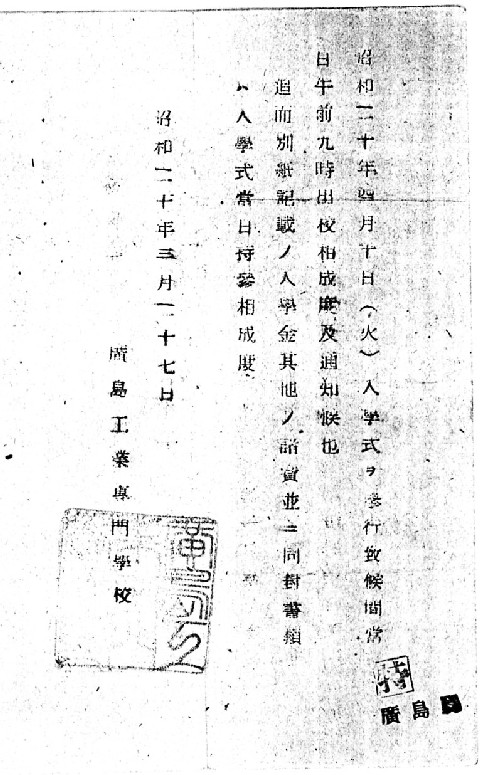 昭和二十年四月十日（火）入學式ヲ擧行致候間當
日午前九時出校相成度及通知候也
追而別紙記載ノ入學金其他ノ諸費並ニ同封書類
ハ入學式當日持參相成度
昭和二十年三月二十七日
廣島工業專門學校
廣島